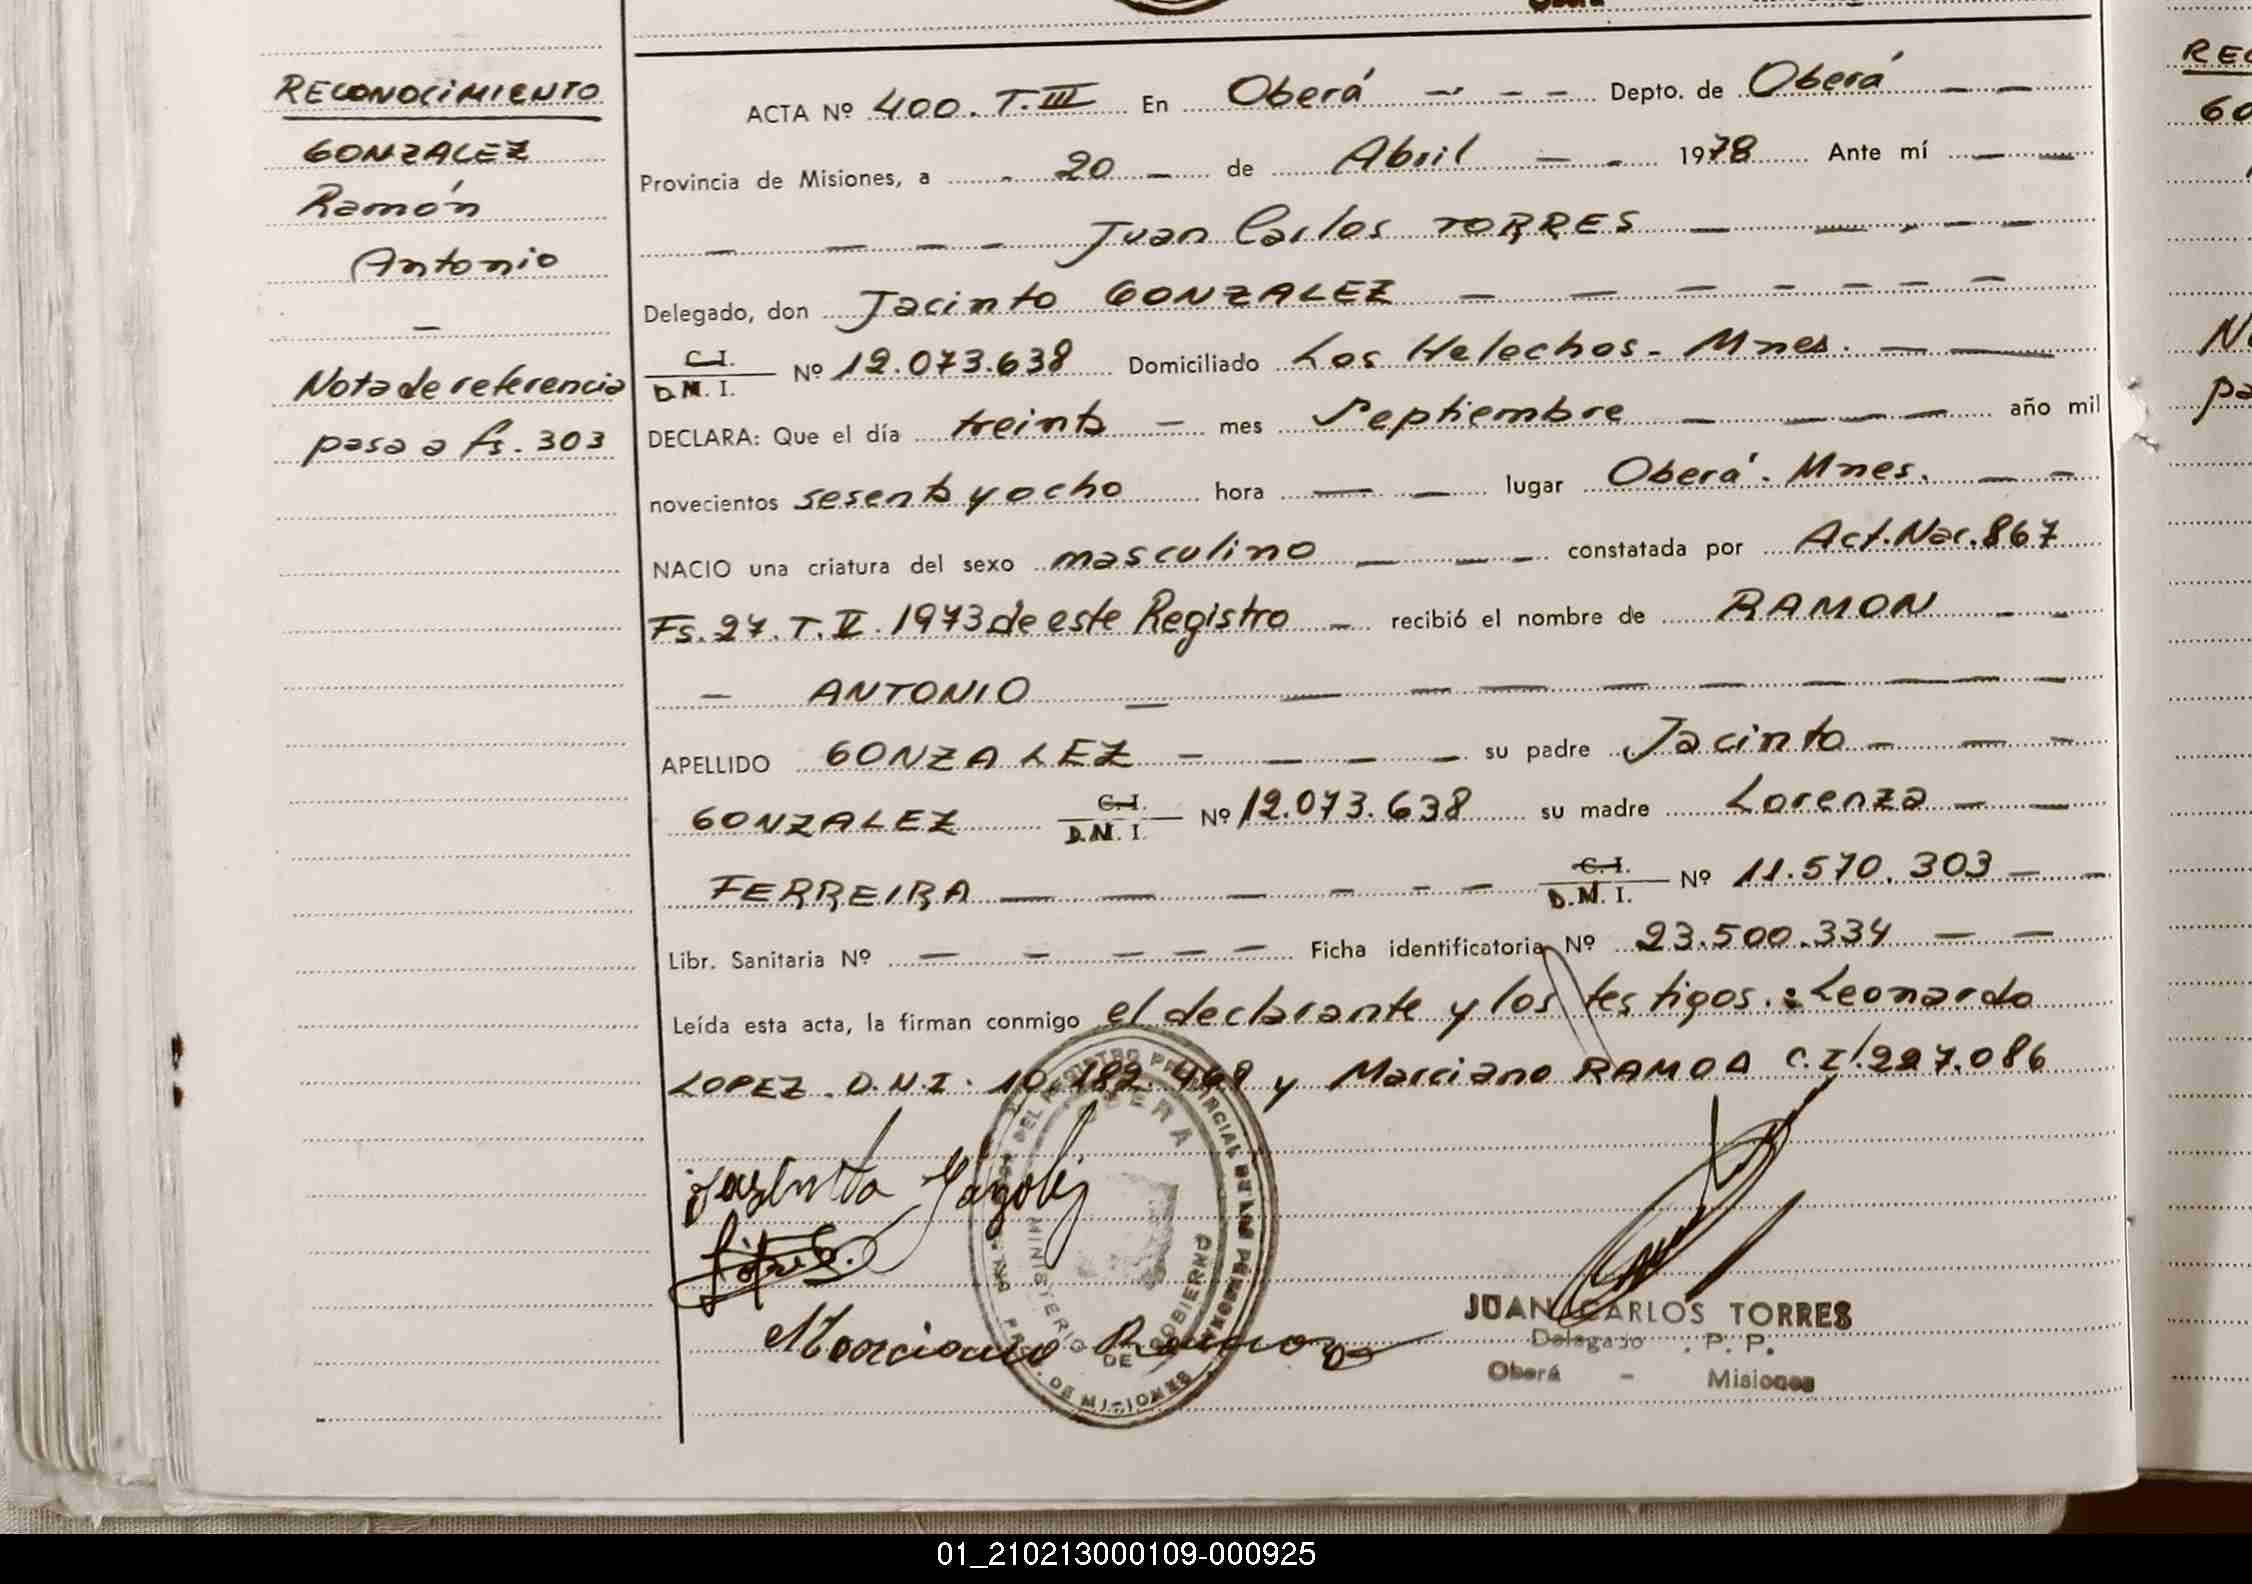 RECONOCIMIENTO
GONZALEZ
Ramón
Antonio
—
Nota de referencia
pasa a fs. 303
ACTA Nº 400. T. III En Oberá Depto. de Oberá
Provincia de Misiones, a 20 de Abril 1978 Ante mí
Juan Carlos TORRES
Delegado, don Jacinto GONZALEZ
C.I.
D.N.I. Nº 12.073.638 Domiciliado Los Helechos - Mnes.
DECLARA: Que el día treinta mes Septiembre año mil
novecientos sesenta y ocho hora — lugar Oberá. Mnes.
NACIO una criatura del sexo masculino constatada por Act. Nac. 867
Fs. 27. T. II. 1973 de este Registro recibió el nombre de RAMON
ANTONIO
APELLIDO GONZALEZ su padre Jacinto
GONZALEZ C.I. D.N.I. Nº 12.073.638 su madre Lorenza
FERREIRA C.I. D.N.I. Nº 11.570.303
Libr. Sanitaria Nº — Ficha identificatoria Nº 23.500.334
Leída esta acta, la firman conmigo el declarante y los testigos.: Leonardo
LOPEZ. D.N.I. 10.182.469 y Marciano RAMOA C.I. 227.086
OBERA
MINISTERIO DE GOBIERNO
DE MISIONES
JUAN CARLOS TORRES
Delegado P. P.
Oberá - Misiones
REC
GO
No
pa
01_210213000109-000925